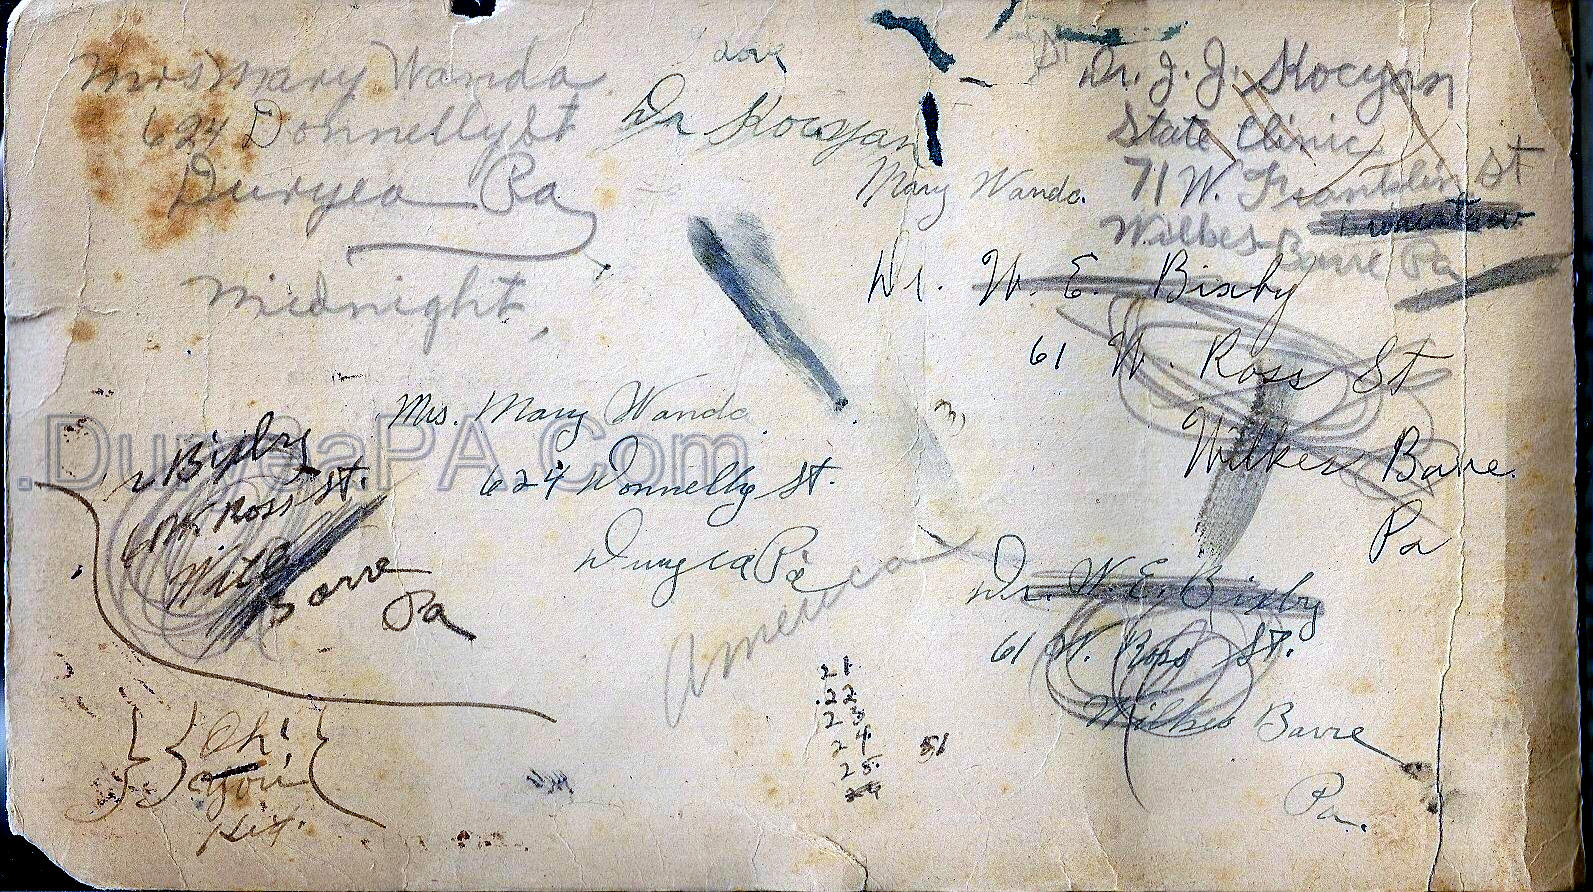 Mrs Mary Wanda
624 Donnelly St
Duryea Pa
Midnight
Love
Dr Kocyan
Mary Wanda
Dr. J. J. Kocyan
State Clinic
71 W. Franklin St
Wilkes-Barre Pa
Dr. W. E. Bixby
61 W. Ross St
Wilkes Barre
Pa
Mrs. Mary Wanda
624 Donnelly St.
Duryea Pa
America
.DuryeaPA.Com
Bixby
61 W. Ross St.
Wilks
Barre
Pa
Oh!
You
Kid.
21
22
23
24
25
51
Dr. W. E. Bixby
61 W. Ross St.
Wilkes Barre
Pa.